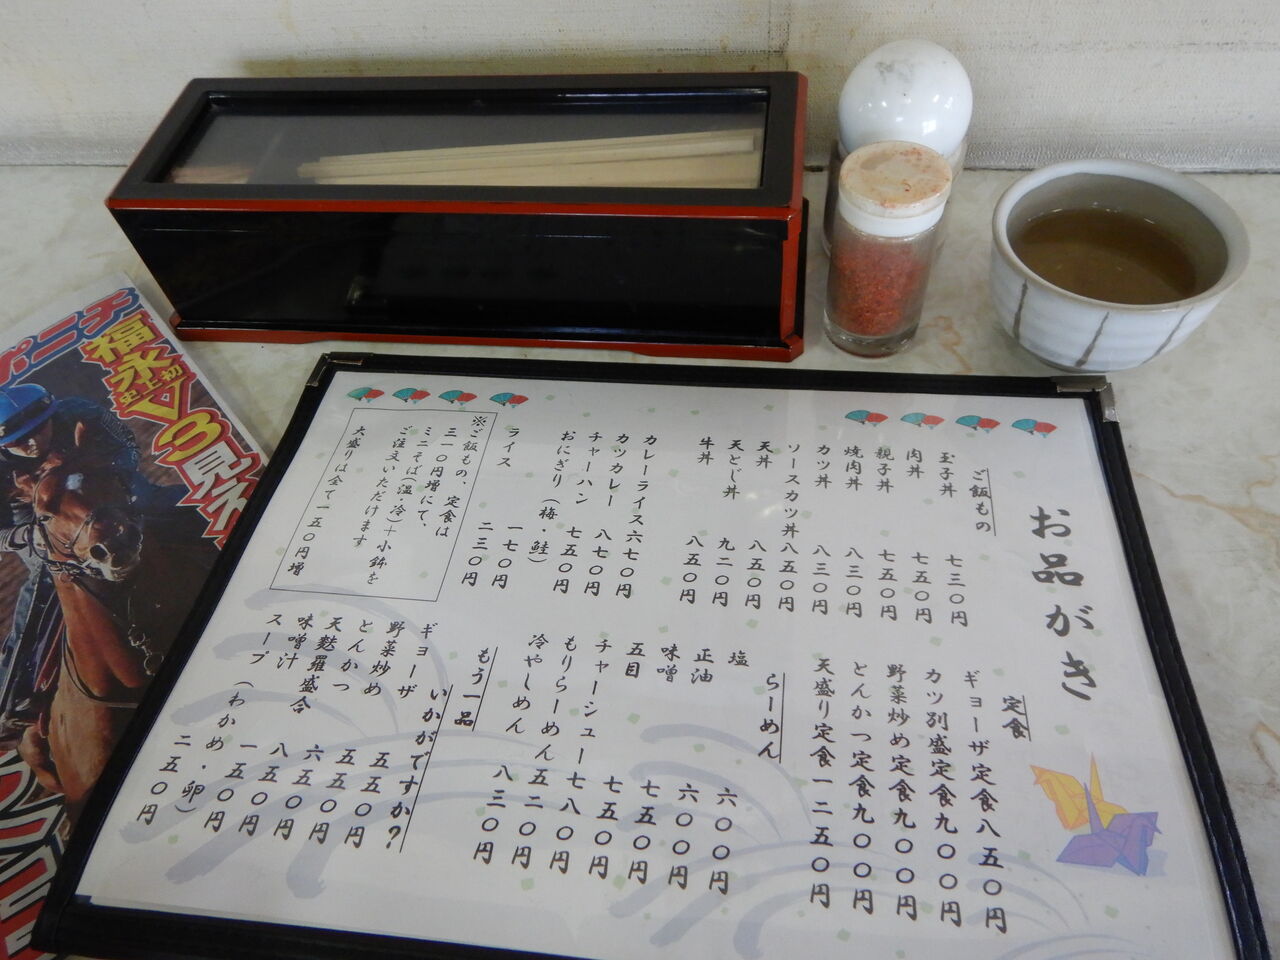 ポニチ
福永
史上初
V3見え
お品がき
ご飯もの
玉子丼 七三〇円
肉丼 七五〇円
親子丼 七五〇円
焼肉丼 八三〇円
カツ丼 八三〇円
ソースカツ丼 八五〇円
天丼 八五〇円
天とじ丼 九二〇円
牛丼 八五〇円
カレーライス 六七〇円
カツカレー 八七〇円
チャーハン 七五〇円
おにぎり（梅・鮭） 一七〇円
ライス 二三〇円
※ご飯もの、定食は
三一〇円増にて、
ミニそば（温・冷）＋小鉢を
ご注文いただけます
大盛りは全て一五〇円増
定食
ギョーザ定食 八五〇円
カツ別盛定食 九〇〇円
野菜炒め定食 九〇〇円
とんかつ定食 九〇〇円
天盛り定食 一二五〇円
らーめん
塩 六〇〇円
正油 六〇〇円
味噌 七五〇円
五目 七五〇円
チャーシュー 七八〇円
もりらーめん 五二〇円
冷やしめん 八三〇円
もう一品
いかがですか？
ギョーザ 五五〇円
野菜炒め 五五〇円
とんかつ 六五〇円
天麩羅盛合 八五〇円
味噌汁 一五〇円
スープ（わかめ・卵） 二五〇円